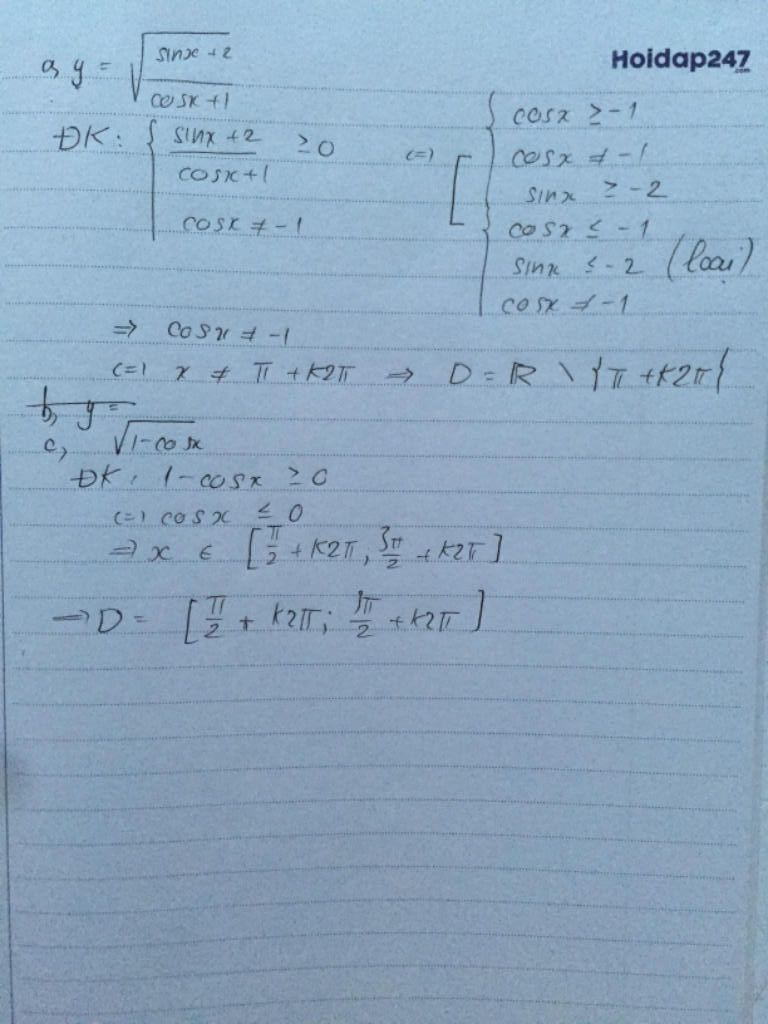 Hoidap247
.com
a, y = √((sinx + 2)/(cosx + 1))
ĐK: { (sinx + 2)/(cosx + 1) ≥ 0
cosx ≠ -1
<=> [ { cosx ≥ -1
cosx ≠ -1
sinx ≥ -2
{ cosx ≤ -1
sinx ≤ -2 (loại)
cosx ≠ -1
=> cosx ≠ -1
<=> x ≠ π + k2π => D = R \ {π + k2π}
b, y =
c, √(1-cosx)
ĐK: 1 - cosx ≥ 0
<=> cosx ≤ 0
=> x ∈ [π/2 + k2π, 3π/2 + k2π]
=> D = [π/2 + k2π; 3π/2 + k2π]